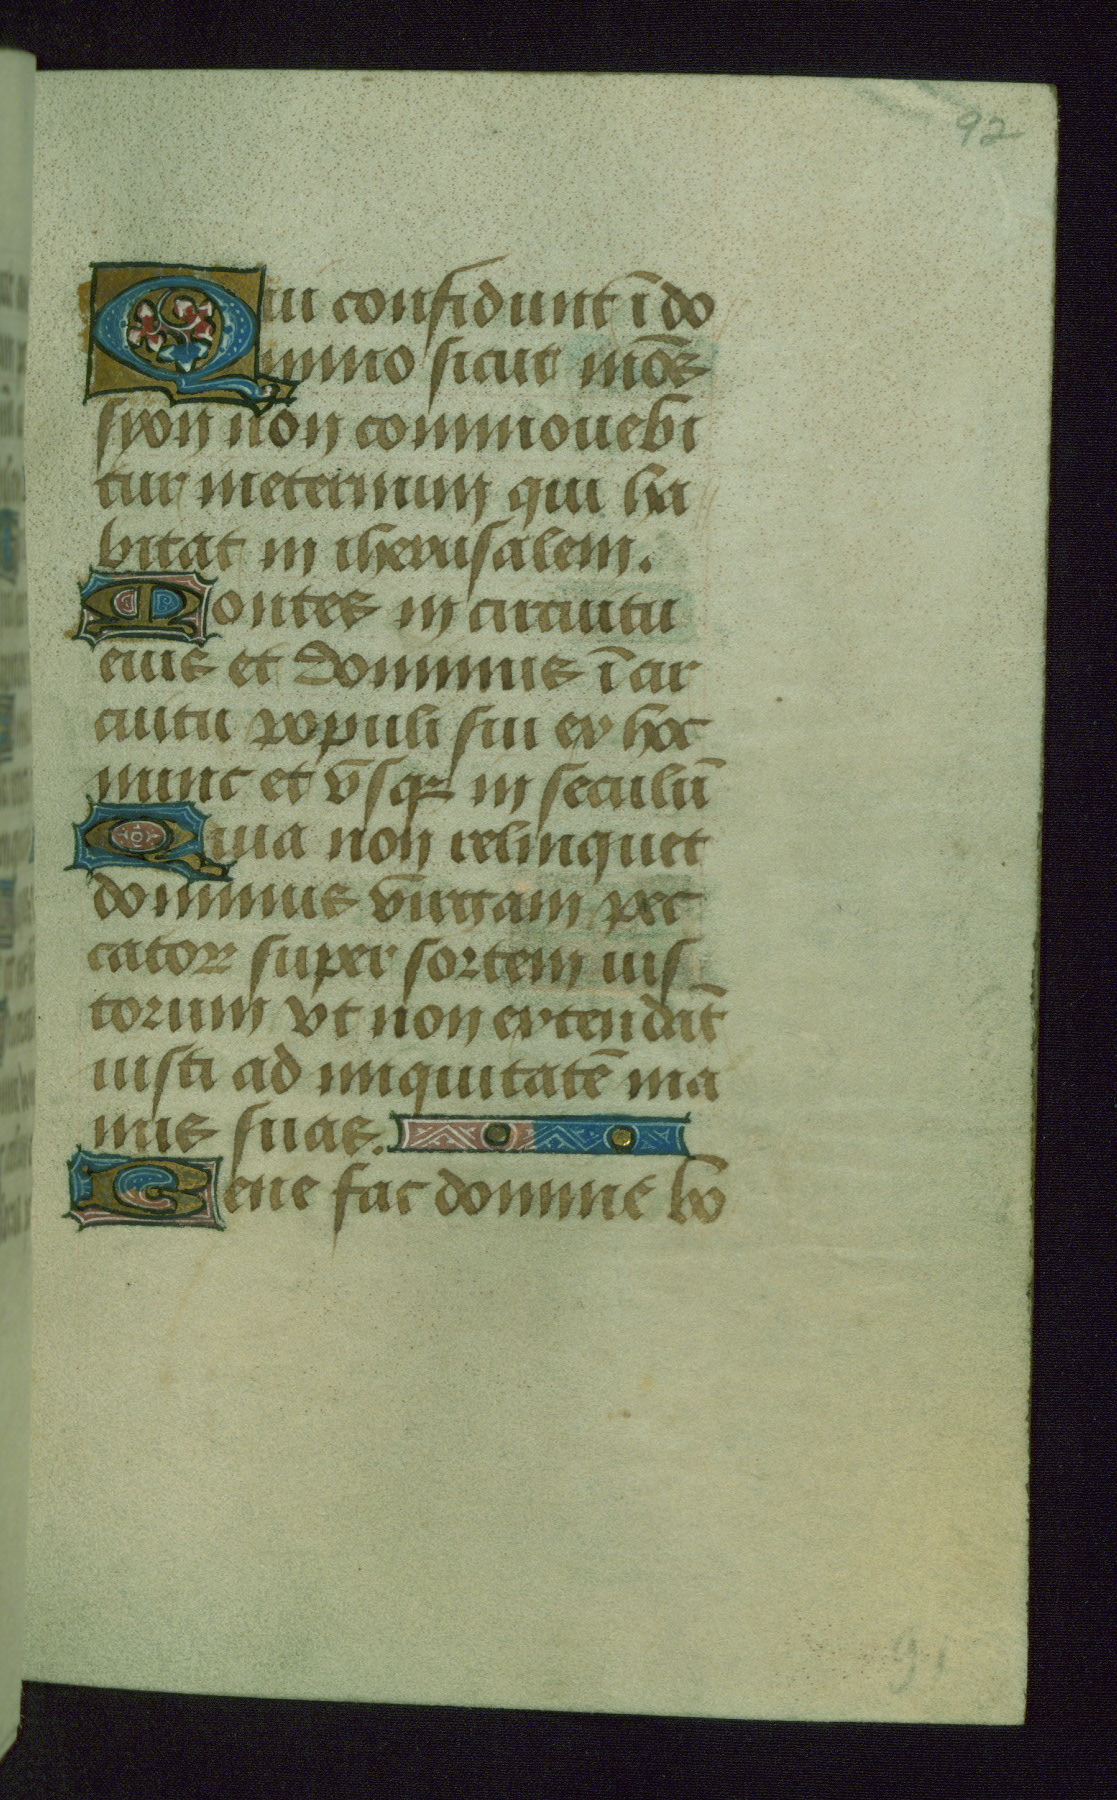 92
Qui confidunt ī do
mino sicut mōs
syon non commouebi
tur ineternum qui ha
bitat in iherusalem.
Montes in circuitu
eius et dominus ī cir
cuitu populi sui ex hoc
nunc et vsqꝫ in seculū
Quia non relinquet
dominus virgam pec
catoꝝ super sortem ius
torum vt non extendāt
iusti ad iniquitatē ma
nus suas.
Bene fac domine bo
91